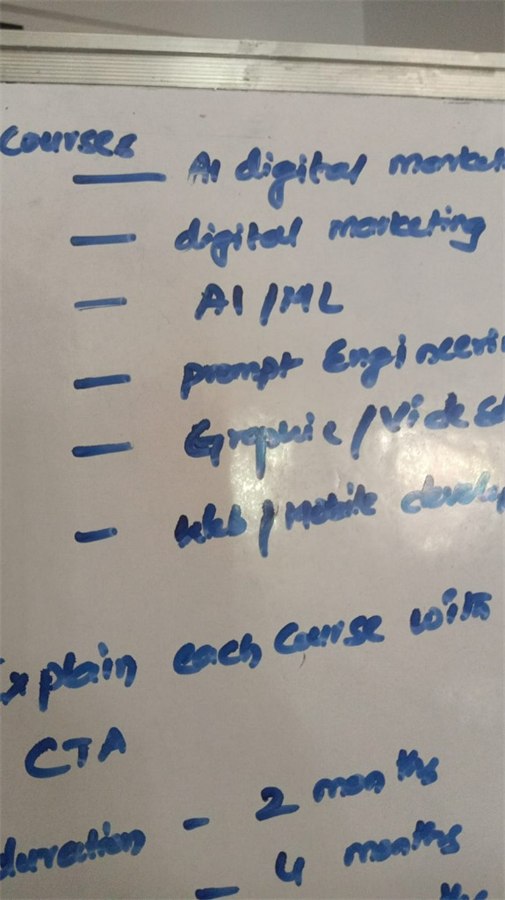 Courses
— AI digital market
— digital marketing
— AI/ML
— prompt Engineerin
— Graphic/Vide Ed
— Web/Mobile develop
Explain each Course with
CTA
duration - 2 months
- 4 months
ths